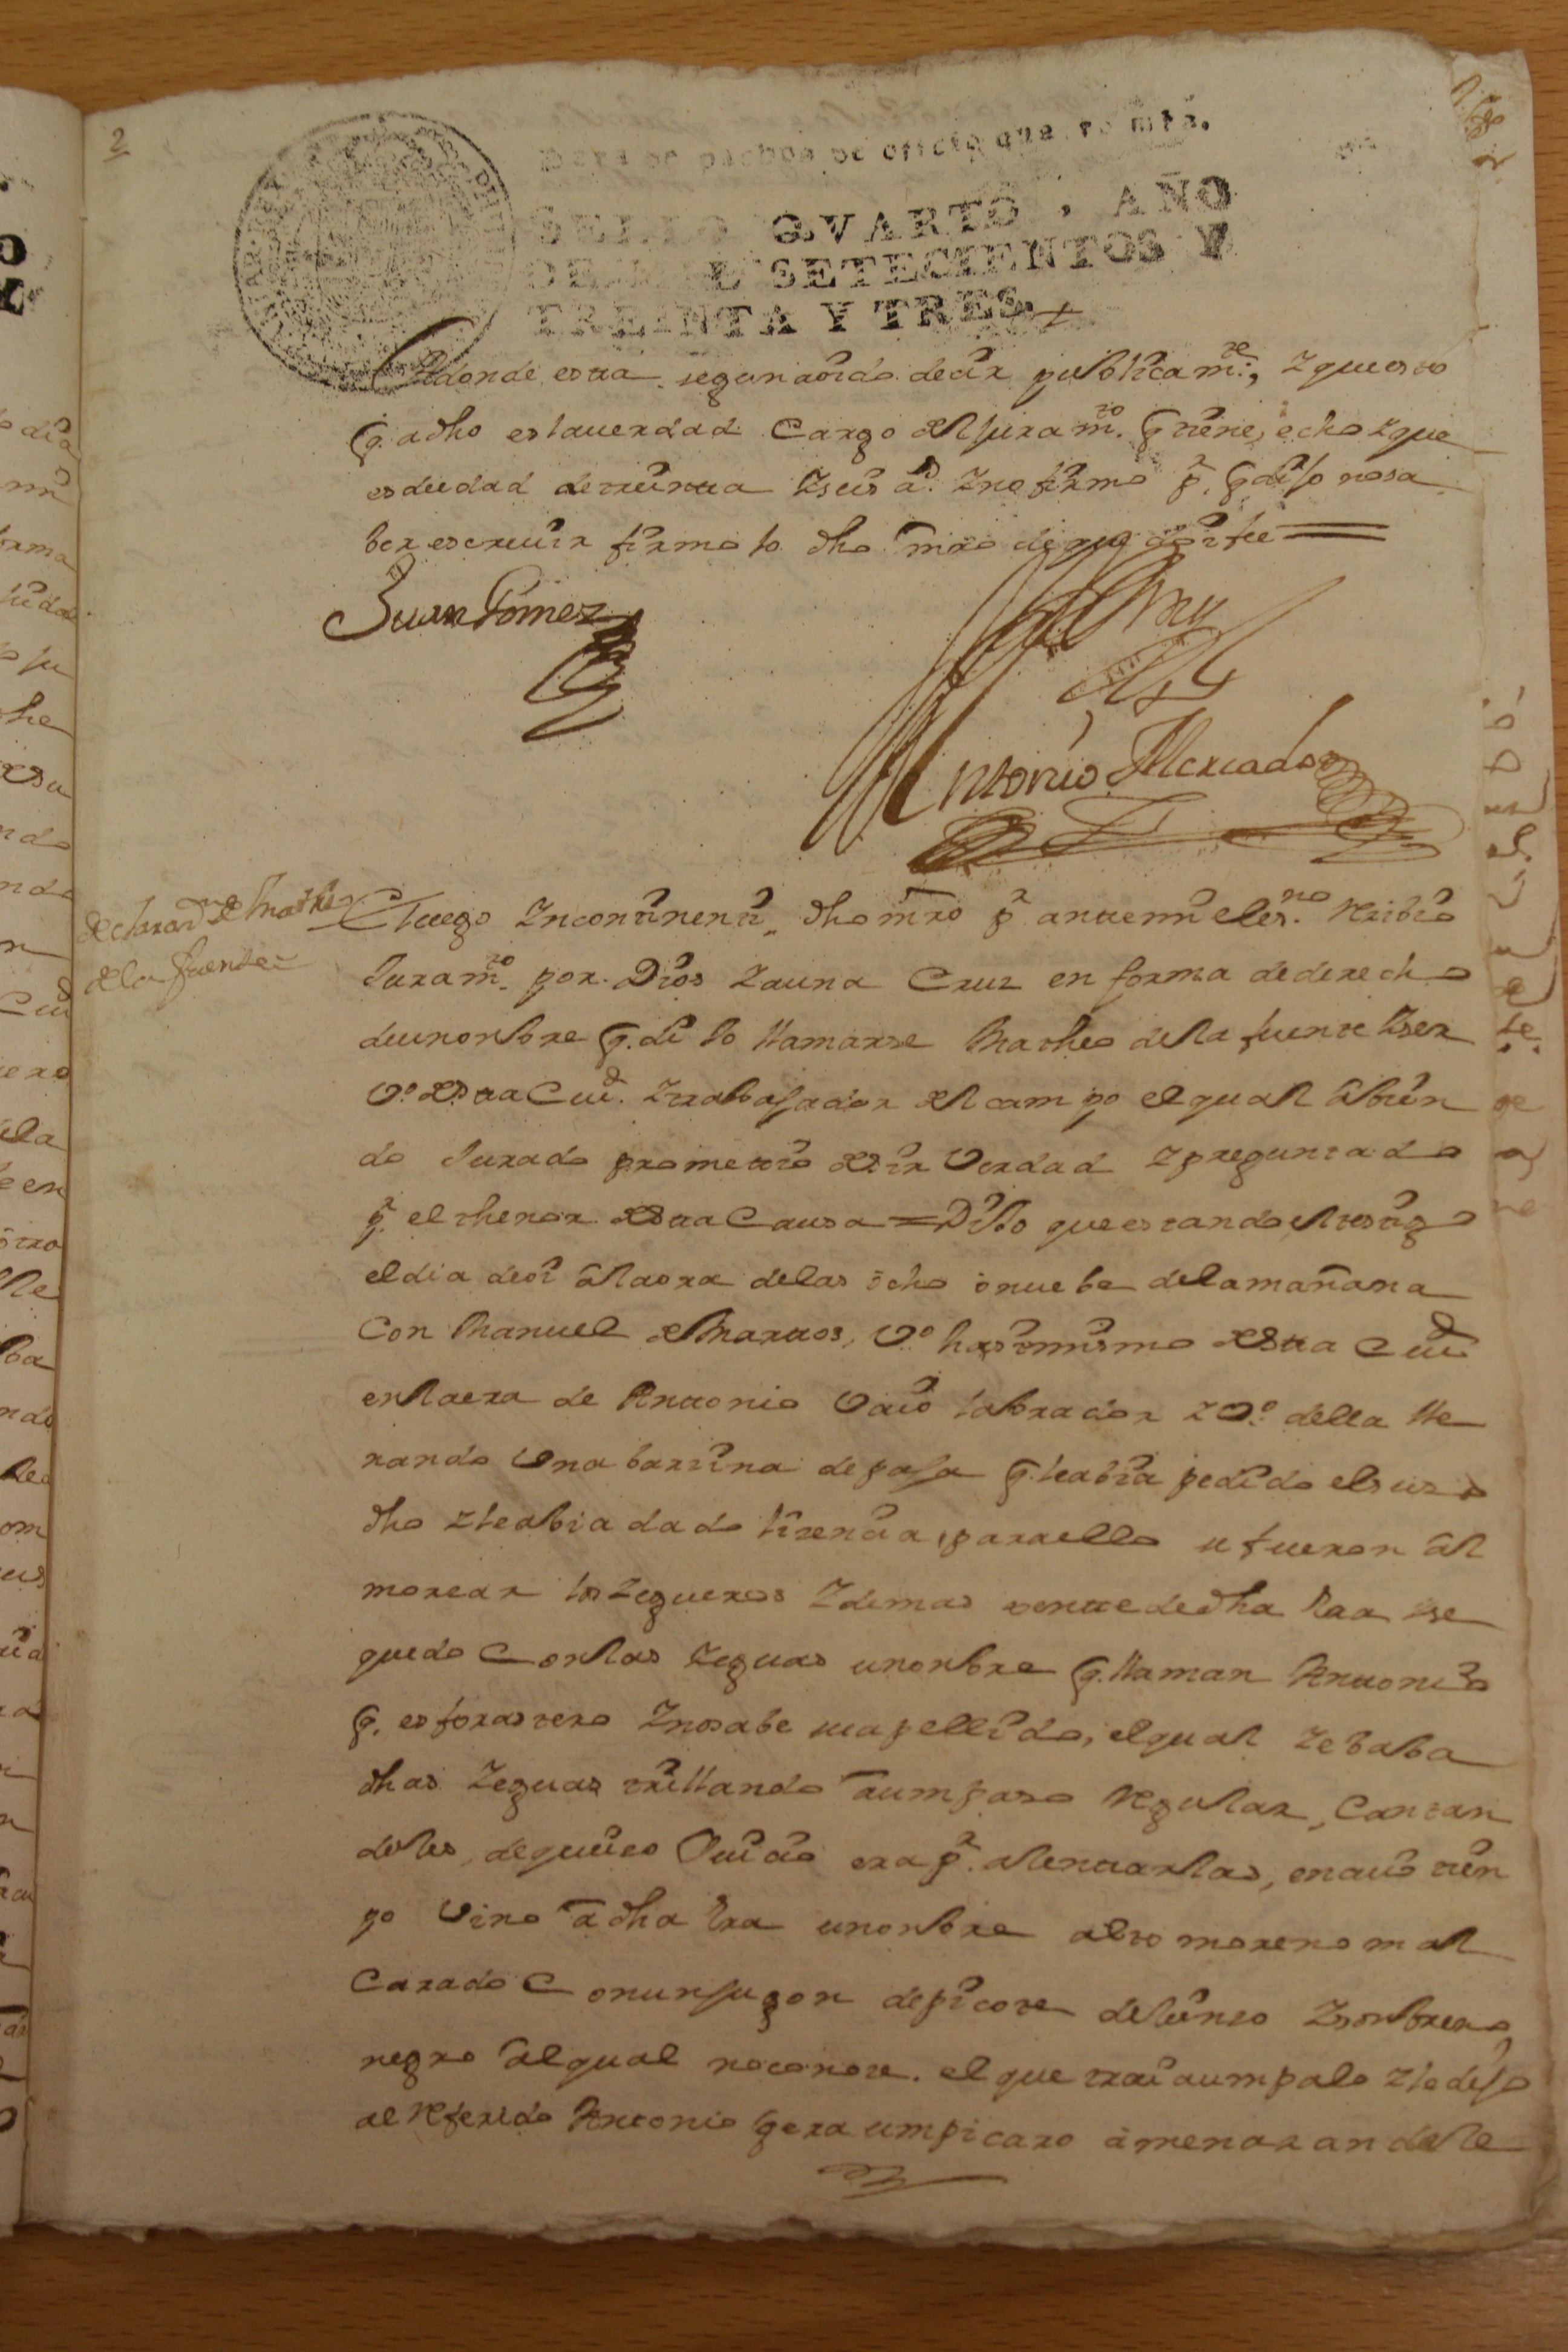 2
Para despachos de oficio quatro mrs.
SELLO QVARTO, AÑO
DE MIL SETECIENTOS Y
TREINTA Y TRES
donde esta segun a oido decir publicamte, y que esto
q. a dho es la uerdad Cargo del juramto. q tiene echo y que
es de edad de treinta y seis as. y no firmo pr. q dijo no sa
ber escreuir firmolo dho mro de que doi fee
Juan Gomez
Antonio Mercador
declarazn de Matheo
de la fuente
Luego Incontinenti dho mro pr ante mi el esno. Reciuio
Juramto. por Dios y a una Cruz en forma de derecho
de un onbre q. dijo llamarse Matheo de la fuente y ser
vo. desta Ciud. y trabajador del campo el qual abien
do Jurado prometio decir Verdad y preguntado
pr. el thenor desta Causa = Dijo que estando el testigo
el dia de oi a la ora de las ocho o nuebe de la mañana
Con Manuel de Martos, Vo. hasimismo desta Ciud
en la era de Antonio labrador y Vo. della lle
nando Una barzina de paja q. le abia pedido el suso
dho y le abia dado lizencia para ello se fueron al
morzar los Yegueros y demas jente de dha Era y se
quedo Con las Yeguas un onbre q. llaman Antonio
q. es forastero y no sabe su apellido, el qual llebaba
dhas Yeguas trillando a um paso Regular, Cantan
doles, de quio era pr. alentarlas, en cuio tien
po Vino a dha Era un onbre alto moreno mal
Carado Con un jugon de picote de lienzo y sonbrero
negro al qual no conoce. el que traia um palo y le dijo
al Referido Antonio q era um picaro amenazandole